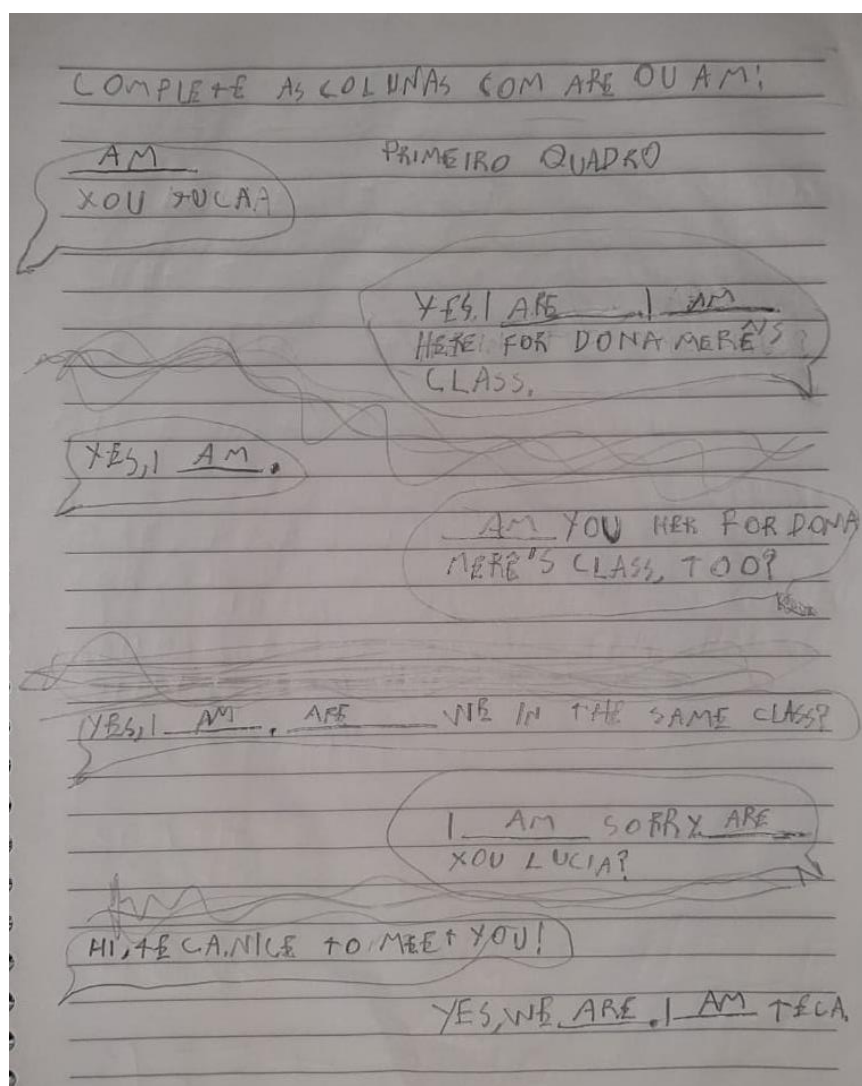 COMPLETE AS COLUNAS COM ARE OU AM:
AM
PRIMEIRO QUADRO
YOU
YES, I ARE . I AM
HERE FOR DONA MERÊ'S
CLASS.
YES, I AM.
AM YOU HER FOR DONA
MERÊ'S CLASS, TOO?
YES, I AM . ARE WE IN THE SAME CLASS?
I AM SORRY. ARE
YOU LUCIA?
HI, TECA. NICE TO MEET YOU!
YES, WE ARE . I AM TECA.